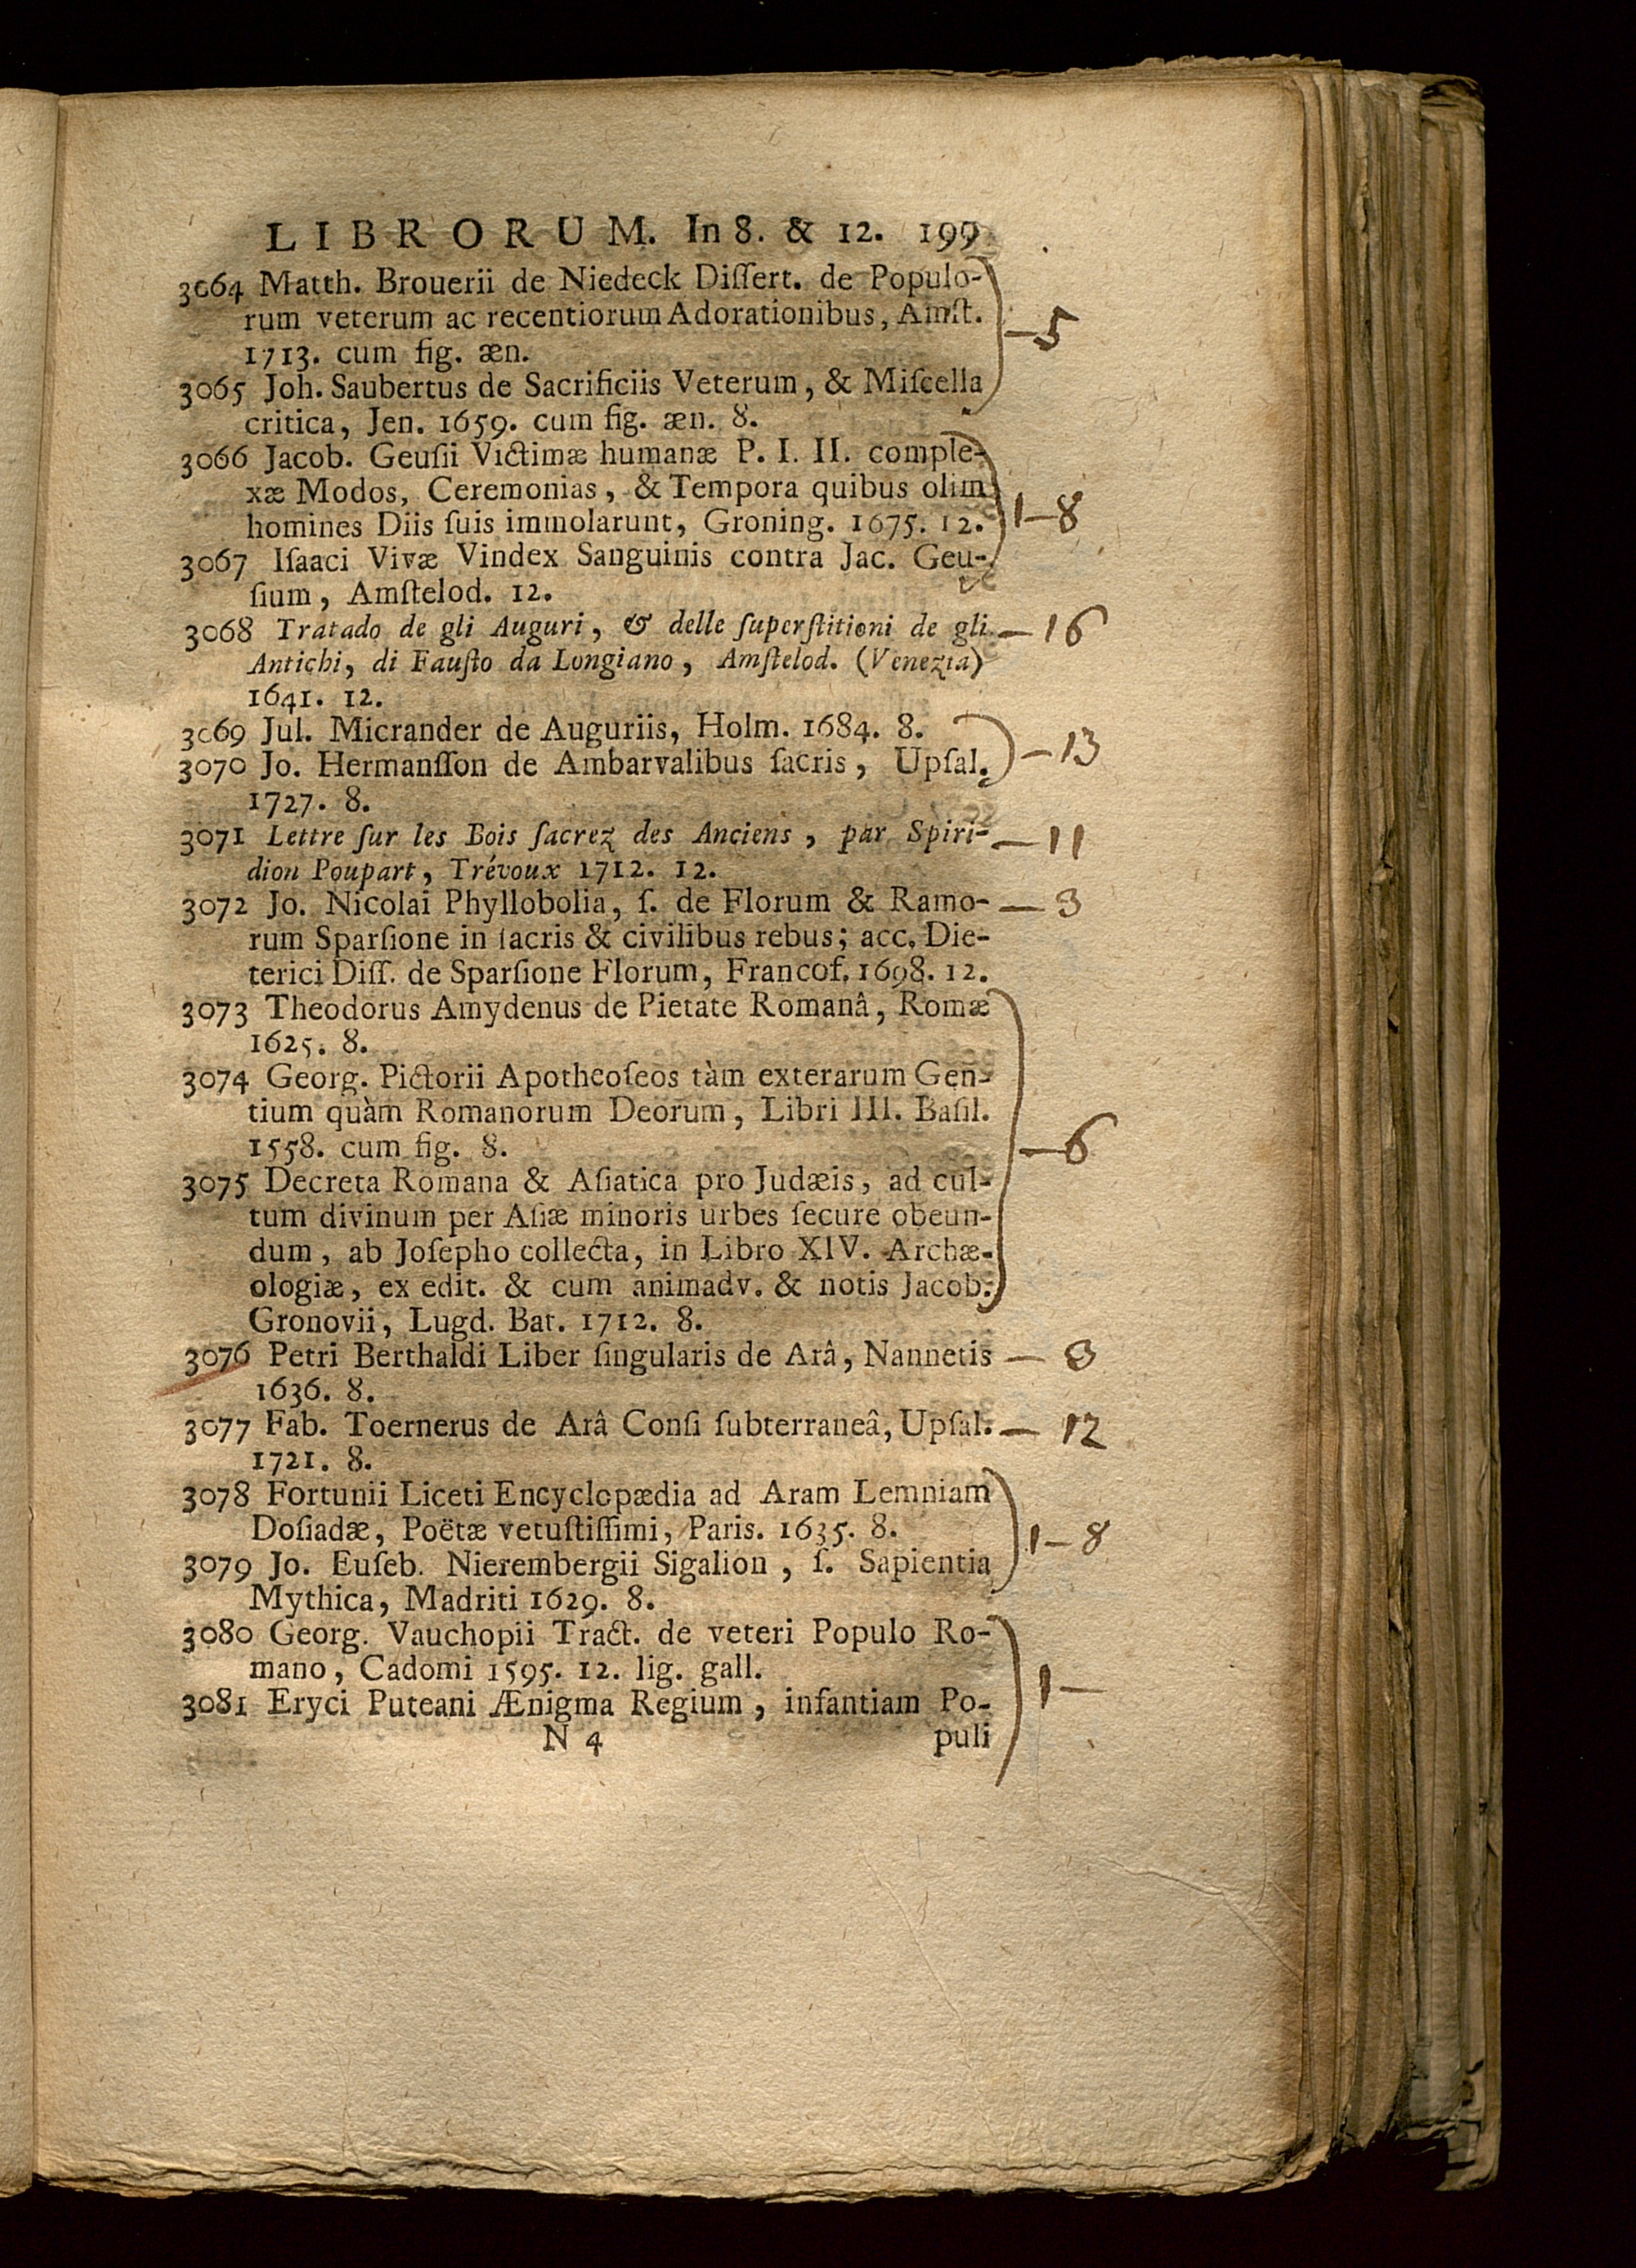 LIBRORUM. In 8. & 12. 199
3064 Matth. Brouerii de Niedeck Diſſert. de Populo-
rum veterum ac recentiorum Adorationibus, Amſt. – 5
1713. cum fig. æn.
3065 Joh. Saubertus de Sacrificiis Veterum, & Miſcella
critica, Jen. 1659. cum fig. æn. 8.
3066 Jacob. Geuſii Victimæ humanæ P. I. II. comple-
xæ Modos, Ceremonias, & Tempora quibus olim 1–8
homines Diis ſuis immolarunt, Groning. 1675. 12.
3067 Iſaaci Vivæ Vindex Sanguinis contra Jac. Geu-
ſium, Amſtelod. 12.
3068 Tratado de gli Auguri, & delle ſuperſtitioni de gli – 16
Antichi, di Fauſto da Longiano, Amſtelod. (Venezia)
1641. 12.
3069 Jul. Micrander de Auguriis, Holm. 1684. 8. – 13
3070 Jo. Hermanſſon de Ambarvalibus ſacris, Upſal.
1727. 8.
3071 Lettre ſur les Bois ſacrez des Anciens, par Spiri- – 11
dion Poupart, Trévoux 1712. 12.
3072 Jo. Nicolai Phyllobolia, ſ. de Florum & Ramo- – 3
rum Sparſione in ſacris & civilibus rebus; acc. Die-
terici Diſſ. de Sparſione Florum, Francof. 1698. 12.
3073 Theodorus Amydenus de Pietate Romanâ, Romæ
1625. 8.
3074 Georg. Pictorii Apotheoſeos tàm exterarum Gen-
tium quàm Romanorum Deorum, Libri III. Baſil.
1558. cum fig. 8. – 6
3075 Decreta Romana & Aſiatica pro Judæis, ad cul-
tum divinum per Aſiæ minoris urbes ſecure obeun-
dum, ab Joſepho collecta, in Libro XIV. Archæ-
ologiæ, ex edit. & cum animadv. & notis Jacob.
Gronovii, Lugd. Bat. 1712. 8.
3076 Petri Berthaldi Liber ſingularis de Arâ, Nannetis –
1636. 8.
3077 Fab. Toernerus de Arâ Conſi ſubterraneâ, Upſal. – 12
1721. 8.
3078 Fortunii Liceti Encyclopædia ad Aram Lemniam
Doſiadæ, Poëtæ vetuſtiſſimi, Paris. 1635. 8. 1–8
3079 Jo. Euſeb. Nierembergii Sigalion, ſ. Sapientia
Mythica, Madriti 1629. 8.
3080 Georg. Vauchopii Tract. de veteri Populo Ro-
mano, Cadomi 1595. 12. lig. gall. 1–
3081 Eryci Puteani Ænigma Regium, infantiam Po-
N 4 puli